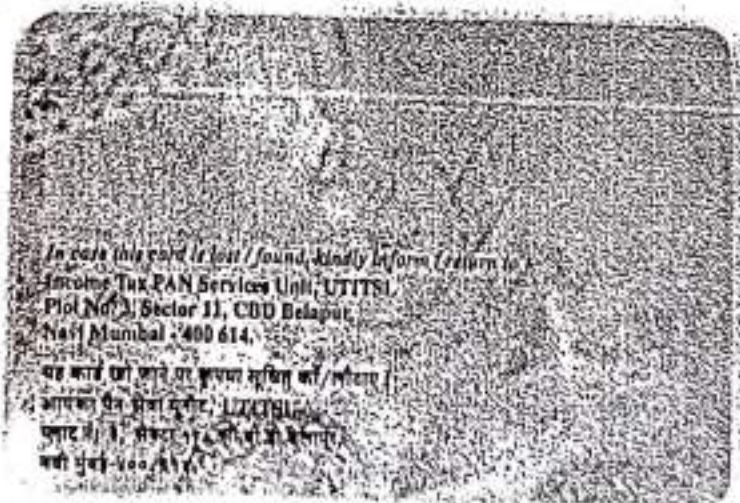 In case this card is lost / found, kindly inform / return to :
Income Tax PAN Services Unit, UTITSL
Plot No. 3, Sector 11, CBD Belapur,
Navi Mumbai - 400 614.
यह कार्ड खो जाने पर कृपया सूचित करें/लौटाएं :
आयकर पैन सेवा यूनीट, UTITSL
प्लाट नं. ३, सेक्टर ११, सी.बी.डी.बेलापूर,
नवी मुंबई-४०० ६१४.